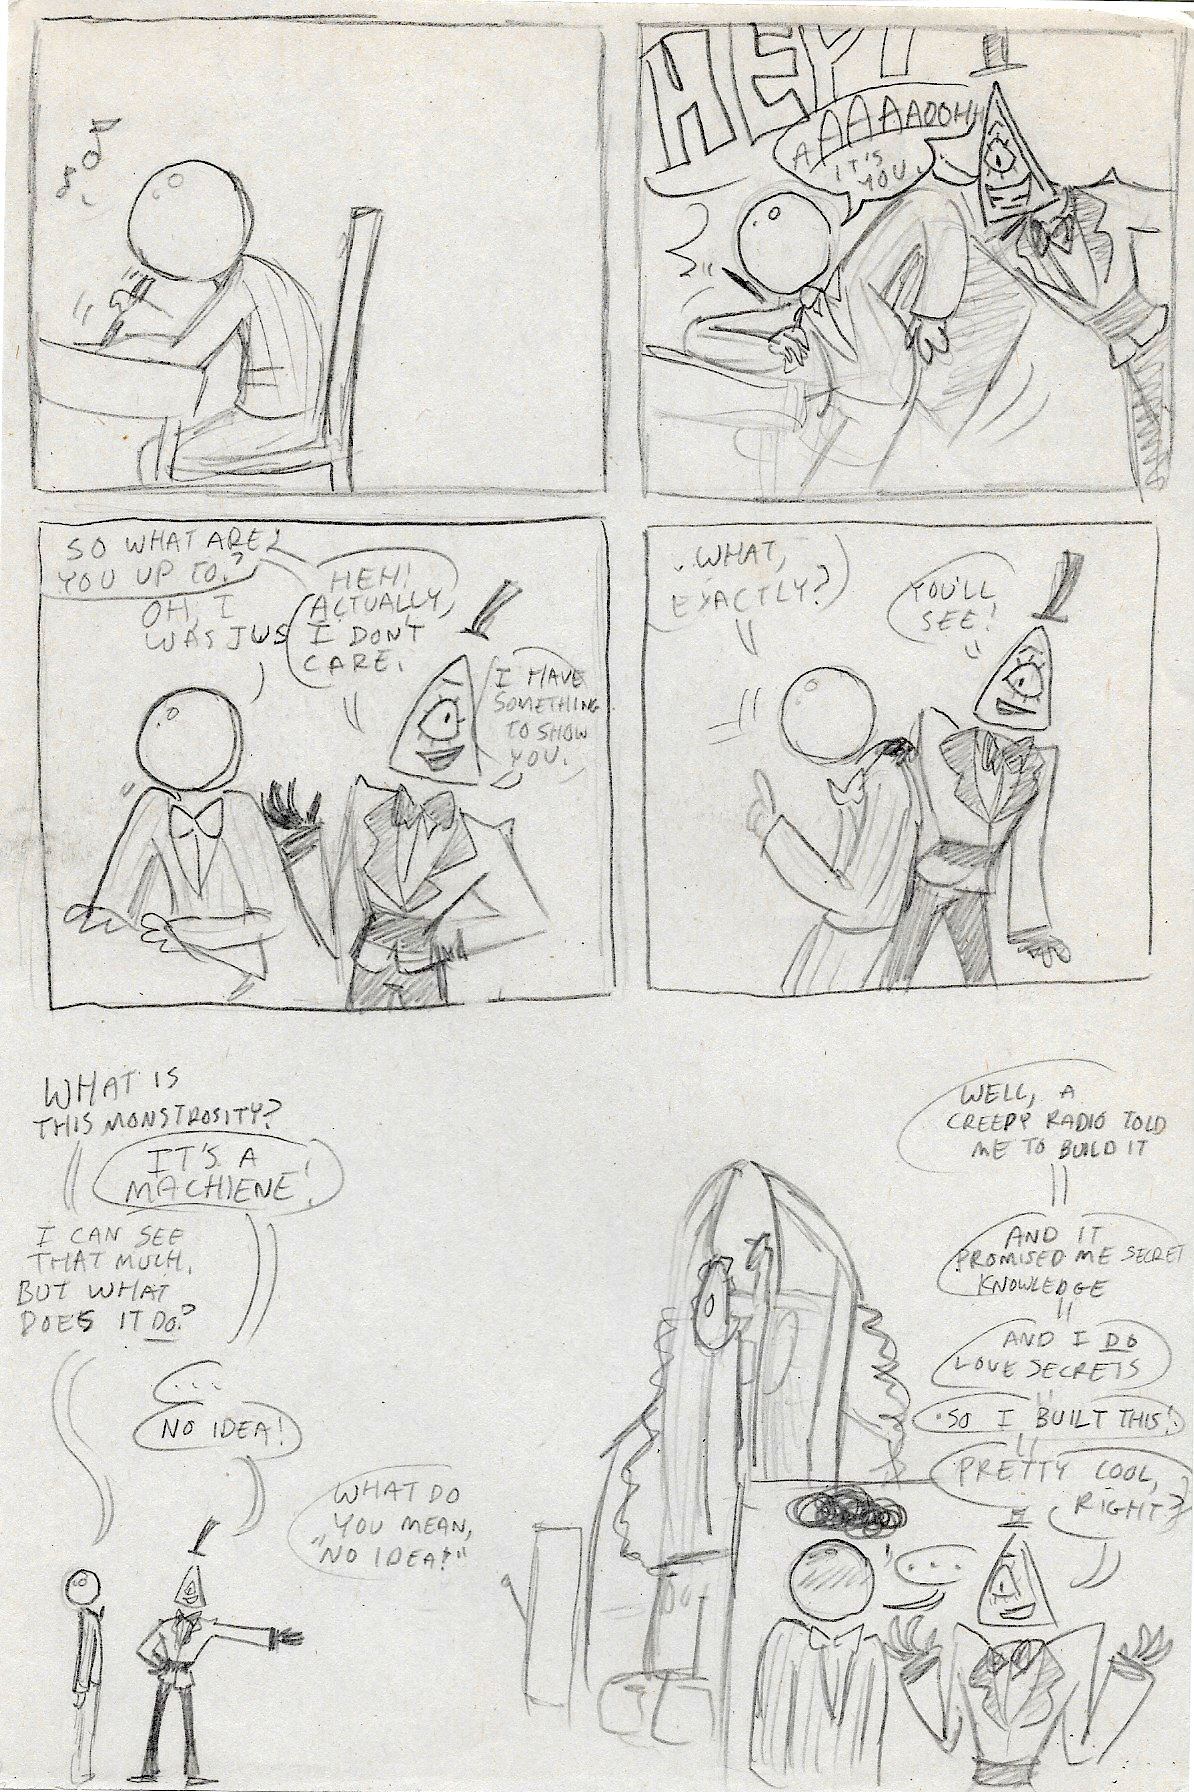 HEY!
AAAAAAOOHH
IT'S
YOU.
SO WHAT ARE
YOU UP TO?
OH, I
WAS JUS
HEH!
ACTUALLY,
I DON'T
CARE.
I HAVE
SOMETHING
TO SHOW
YOU.
..WHAT,
EXACTLY?
YOU'LL
SEE!
WHAT IS
THIS MONSTROSITY?
IT'S A
MACHIENE!
I CAN SEE
THAT MUCH,
BUT WHAT
DOES IT DO?
...
NO IDEA!
WHAT DO
YOU MEAN,
"NO IDEA?"
WELL, A
CREEPY RADIO TOLD
ME TO BUILD IT
AND IT
PROMISED ME SECRET
KNOWLEDGE
AND I DO
LOVE SECRETS
SO I BUILT THIS!
PRETTY COOL,
RIGHT?
...